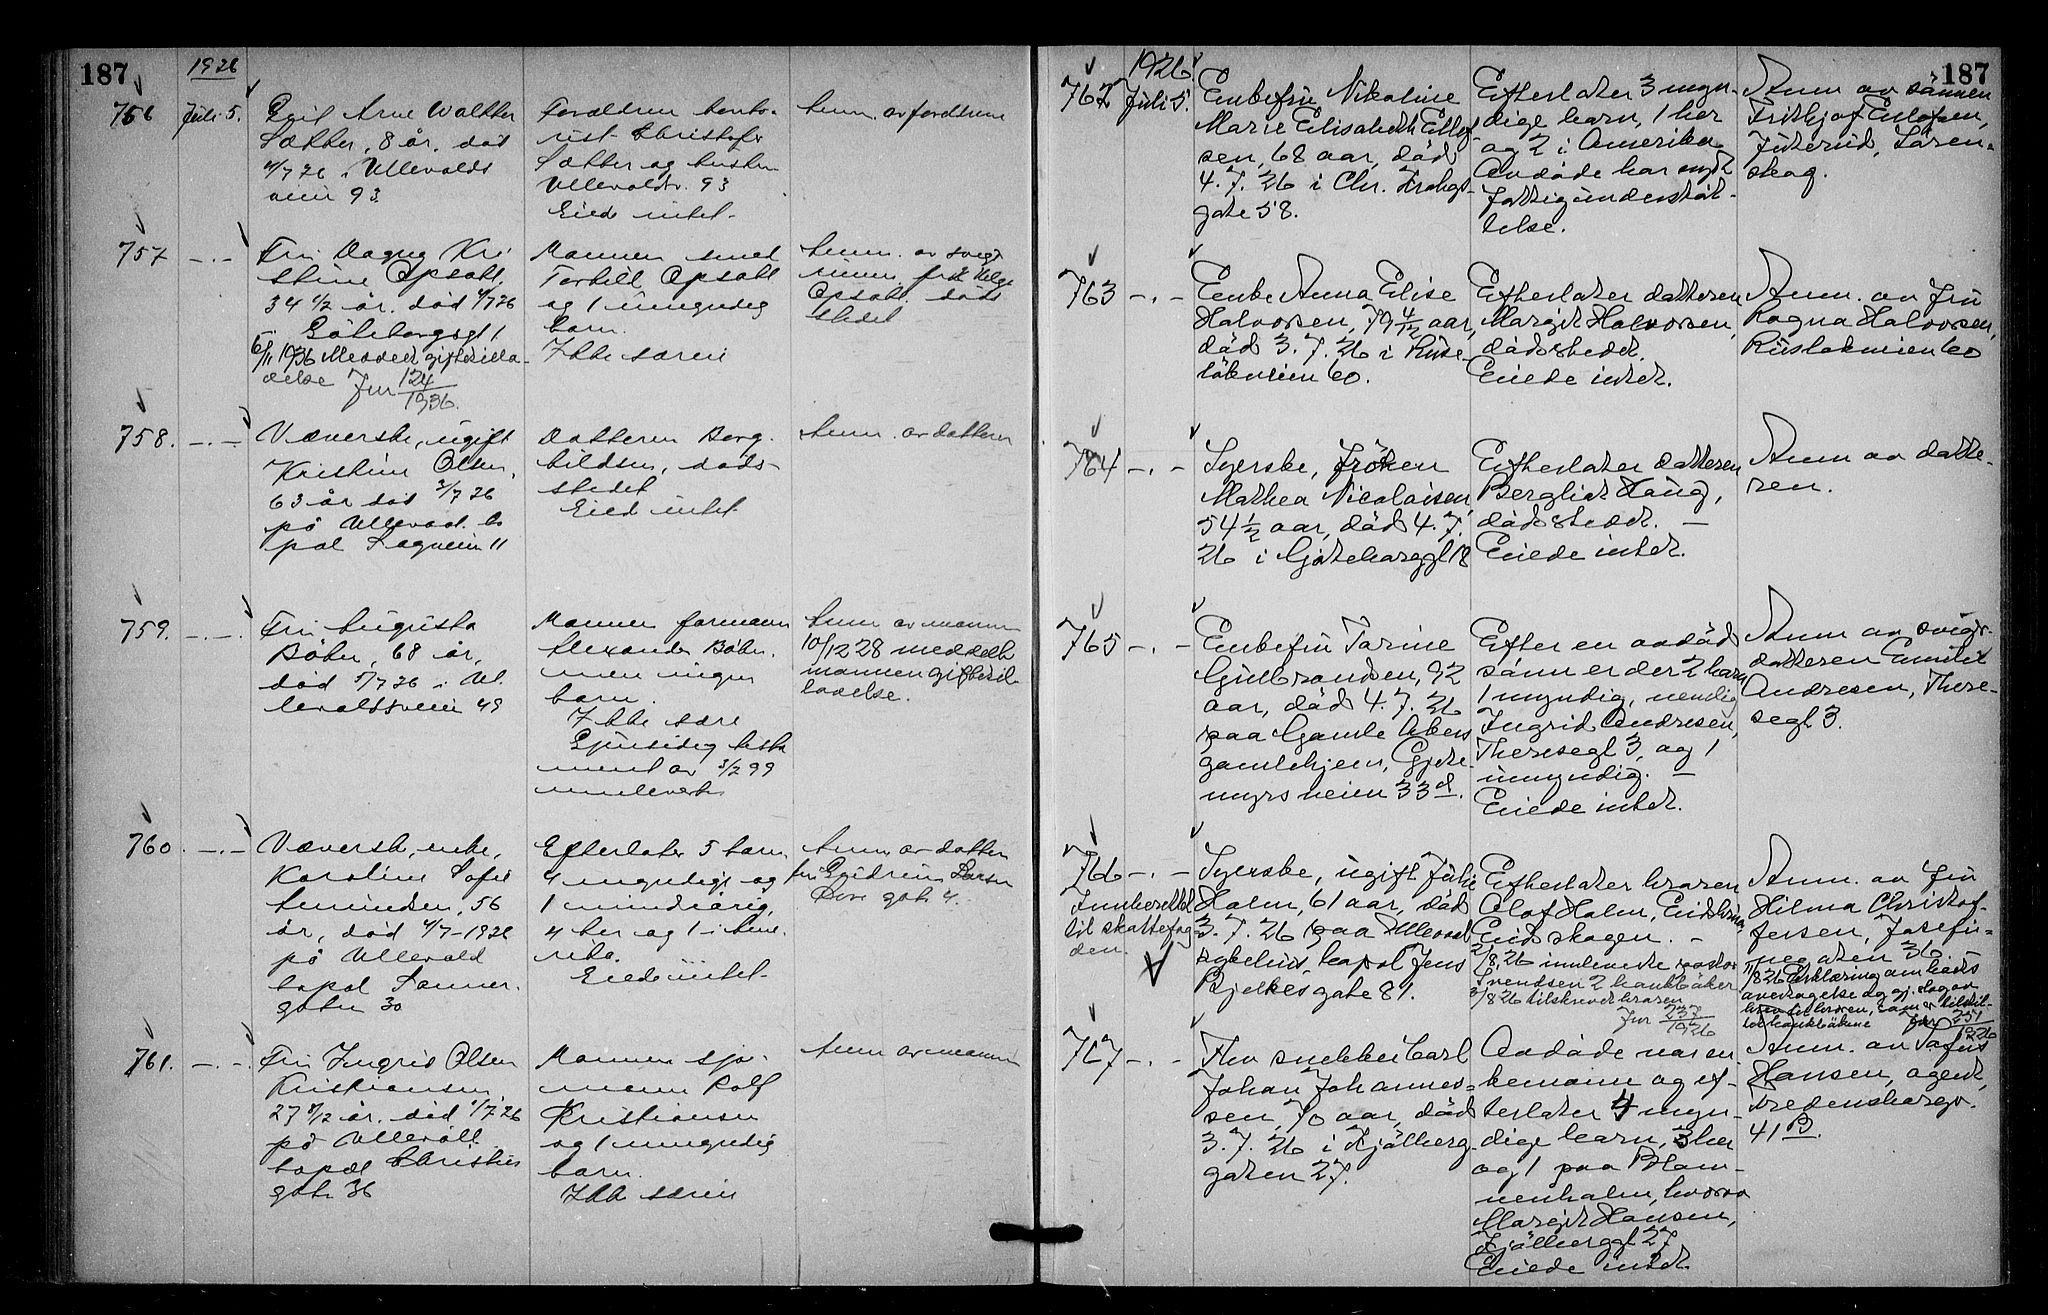 187
1926
756
Juli 5.
Egil Arne Walther
Sætter, 8 år, død
4/7 26 i Ullevolds
veien 93
Foreldrene konto-
rist Christofer
Sætter og hustru
Ullevoldsv. 93
Eiede intet.
Anm. av foreldrene
757
—.—
Fru Dagny Kri
stine Opsahl,
34 1/2 år. død 4/7 26
Göteborggt 1
6/11 1936 Meddelt gifteritla
delse Jnr 124/1936.
Mannen smed
Torkild Opsahl
og 1 umyndig
barn.
Ikke særeie
Anm. av svoger
Opsahl. døds
stedet
758.
—.—
Væverske, ugift
Kristine Olsen,
63 år død 2/7 26
på Ullevaal ho
pal Sagveien 11
Datteren Borg-
hildsen, døds-
stedet
Eied intet
Anm. av datteren
759.
—.—.
Fru Augusta
Bøhn, 68 år,
død 5/7 26 i Ul
levoldsveien 49
Mannen formann
Alexander Bøhn.
men ingen
barn.
Ikke sære
Gjensidig testa
ment av 3/2 99
innlevert
Anm av mannen
10/12 28 meddelt
mannen gifteritla
ladelse.
760.
—.—
Væversk, enke,
Karoline Sofie
Amundsen, 56
år, død 4/7-1926
på Ullevold
hopal Sanner-
gaten 30
Efterlater 5 barn
4 myndige og
1 mindreårig,
4 her og 1 i Ame
rika.
Eiede intet
Anm av datter
fru Gudrun Larsen
gate 4.
761.
—.—.
Fru Ingrid Olsen
Kristiansen
27 8/12 år. død 1/7 26
på Ullevåll
hospal Christies
gate 36
Mannen sjø-
mann Rolf
Kristiansen
og 1 umyndig
barn
Ikke særeie
Anm av mannen
187
1926
762
Juli 5.
Enkefru Nikoline
Marie Elisabeth Ellef-
sen, 68 aar, död
4. 7. 26 i Chr. Krohgs-
gate 58.
Efterlater 3 myn-
dige barn, 1 her
og 2 i Amerika
Avdöde har nydt
fattigunderstöt-
telse.
Anm av sönnen
Frithjof Ellefsen,
Fjuterud, Lören-
skog.
763
—.—
Enke Anna Elise
Halvorsen, 79 4/12 aar,
död 3. 7. 26 i Ruse-
lökveien 60.
Efterlater datteren
Margit Halvorsen,
dödsstedet.
Eiede intet.
Anm. av fru
Ragna Halvorsen,
Ruslökveien 60
764
—.—
Syerske, fröken
Mathea Nicolaisen
54 1/2 aar, död 4. 7.
26 i Gjøteborggt 18
Efterlater datteren
Bergliot Haug,
dödsstedet. —
Eiede intet.
Anm av datte-
ren.
765
—.—
Enkefru Tarine
Gulbrandsen, 92
aar, död 4. 7. 26
paa Gamle Akers
gamlehjem, Gjete-
myrsveien 33d.
Efter en avdöd
sönn er der 2 barn
1 myndig, nemlig
Ingrid Andresen,
Theresegt 3, og 1
umyndig. —
Eiede intet.
Anm av svigr-
datteren Emilie
Andresen, There-
segt 3.
766
—.—
Innberettet
til skattefog
den.
Syerske, ugift Julie
Holm, 61 aar, död
3. 7. 26 paa Ullevaal
sykehus, hospal Jens
Bjelkesgate 81.
Efterlater broren
Olof Holm,
Eidskogen. —
2/8 26 innleverte pastor
Svendsen 2 bankböker
3/8 26 tilskrevet broren
Jnr 237/1926
Anm. av fru
Hilma Christof-
fersen, Josefi-
negaten 36. —
11/8 26 Erklæring om boets
overtagelse
Jnr 251/1926
767
—.—
Fhv snekker Carl
Johan Johannes-
sen, 70 aar, död
3. 7. 26 i Kjölberg-
gaten 27.
Avdöde var en-
kemann og ef-
terlater 4 myn-
dige barn, 3 her
og 1 paa Blom-
menholm, hvorav
Margit Hansen,
Kjölberggt 27
Eiede intet.
Anm. av
Hansen, agent,
Fredensborgv.
41 B.